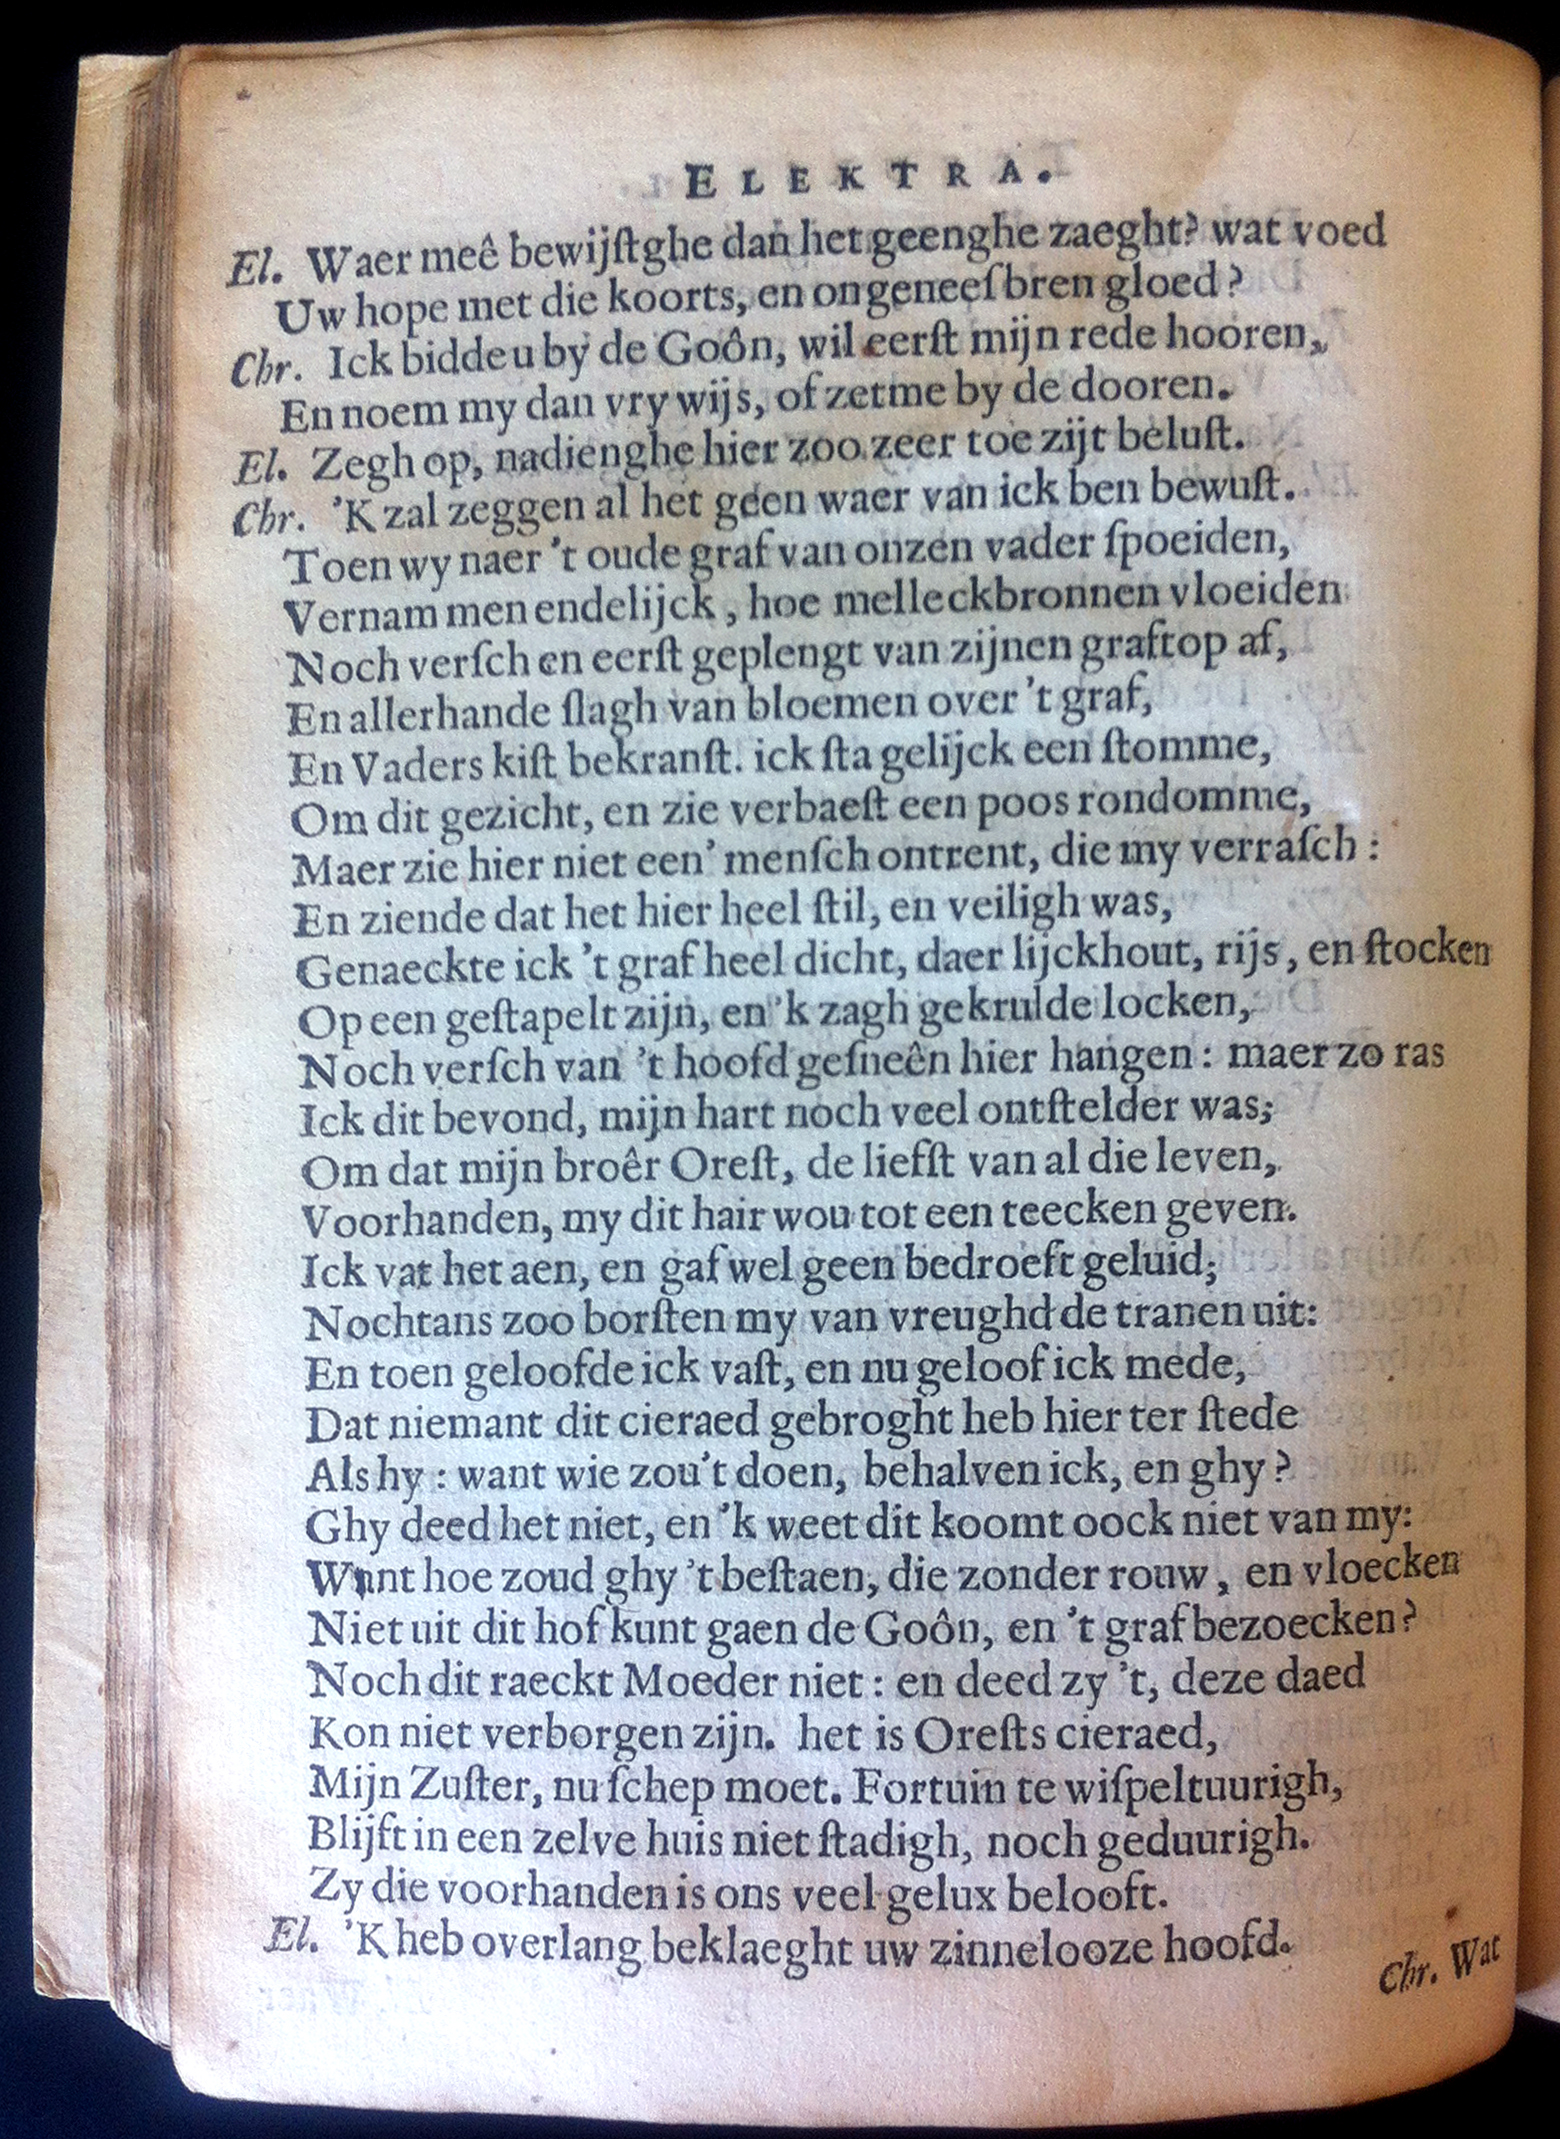 ELEKTRA.
El. Waer meê bewijſtghe dan het geenghe zaeght? wat voed
Uw hope met die koorts, en ongeneeſbren gloed?
Chr. Ick bidde u by de Goôn, wil eerſt mijn rede hooren,
En noem my dan vry wijs, of zetme by de dooren.
El. Zegh op, nadienghe hier zoo zeer toe zijt beluſt.
Chr. 'K zal zeggen al het geen waer van ick ben bewuſt.
Toen wy naer 't oude graf van onzen vader ſpoeiden,
Vernam men endelijck, hoe melleckbronnen vloeiden
Noch verſch en eerſt geplengt van zijnen graftop af,
En allerhande ſlagh van bloemen over 't graf,
En Vaders kiſt bekranſt. ick ſta gelijck een ſtomme,
Om dit gezicht, en zie verbaeſt een poos rondomme,
Maer zie hier niet een' menſch ontrent, die my verraſch:
En ziende dat het hier heel ſtil, en veiligh was,
Genaeckte ick 't graf heel dicht, daer lijckhout, rijs, en ſtocken
Op een geſtapelt zijn, en 'k zagh gekrulde locken,
Noch verſch van 't hoofd geſneên hier hangen: maer zo ras
Ick dit bevond, mijn hart noch veel ontſtelder was;
Om dat mijn broêr Oreſt, de liefſt van al die leven,
Voorhanden, my dit hair wou tot een teecken geven.
Ick vat het aen, en gaf wel geen bedroeft geluid;
Nochtans zoo borſten my van vreughd de tranen uit:
En toen geloofde ick vaſt, en nu geloof ick mede,
Dat niemant dit cieraed gebroght heb hier ter ſtede
Als hy: want wie zou't doen, behalven ick, en ghy?
Ghy deed het niet, en 'k weet dit koomt oock niet van my:
Want hoe zoud ghy 't beſtaen, die zonder rouw, en vloecken
Niet uit dit hof kunt gaen de Goôn, en 't graf bezoecken?
Noch dit raeckt Moeder niet: en deed zy 't, deze daed
Kon niet verborgen zijn. het is Oreſts cieraed,
Mijn Zuſter, nu ſchep moet. Fortuin te wiſpeltuurigh,
Blijft in een zelve huis niet ſtadigh, noch geduurigh.
Zy die voorhanden is ons veel gelux belooft.
El. 'K heb overlang beklaeght uw zinnelooze hoofd.
Chr. Wat